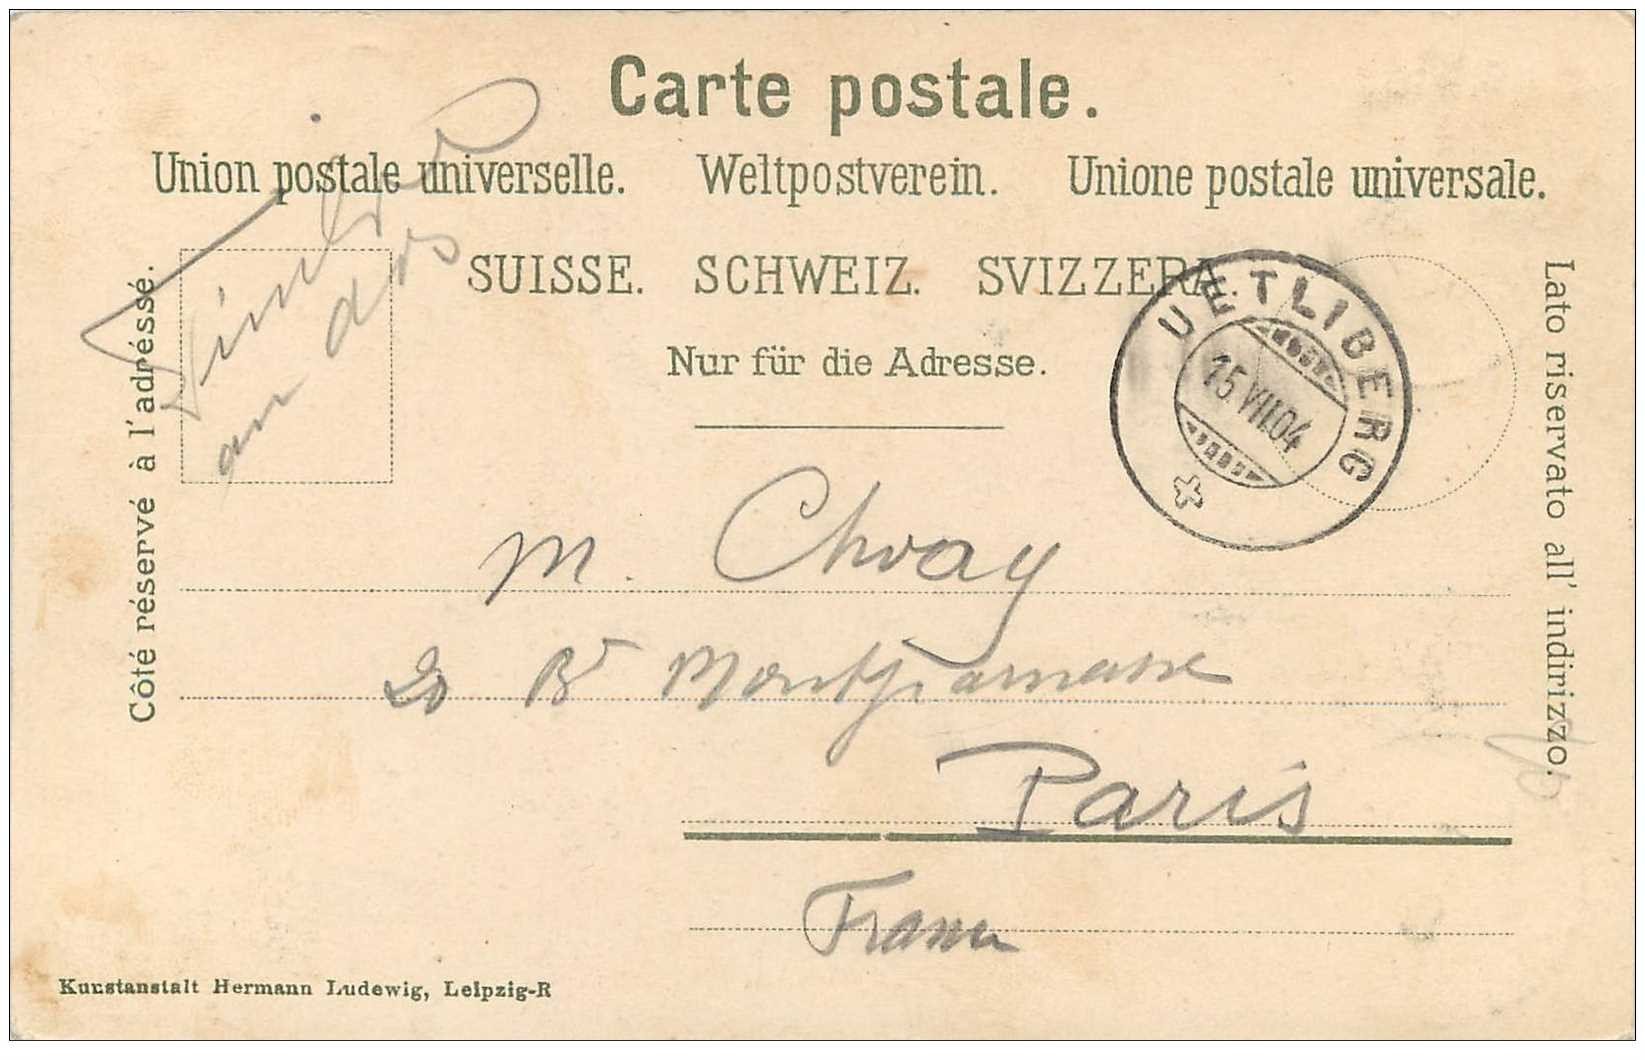 Carte postale.
Union postale universelle. Weltpostverein. Unione postale universale.
SUISSE. SCHWEIZ. SVIZZERA.
Nur für die Adresse.
Timbre
au dos
UETLIBERG
15.VII.04
Côté réservé à l'adréssé.
Lato riservato all' indirizzo.
M.
20 Bd Montparnasse
Paris
France
Kunstanstalt Hermann Ludewig, Leipzig-R